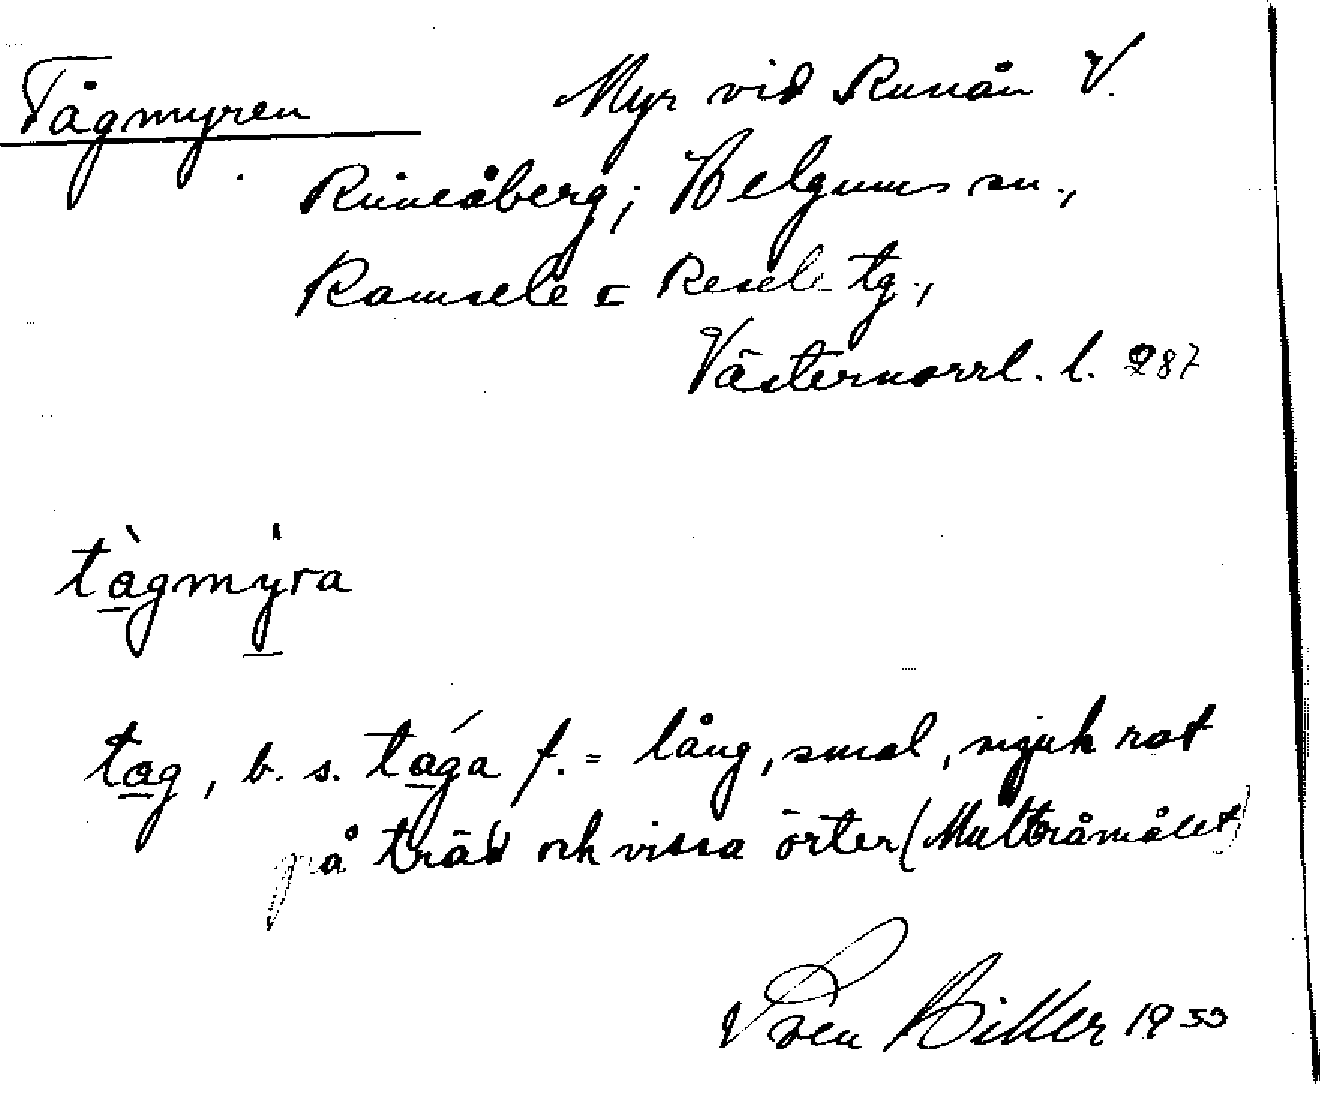 Tågmyren Myr vid Runån V.
Runeåberg; Helgums sn.,
Ramsele o Resele tg.,
Västernorrl. l. 287
tàgmỳra
tag, b. s. tága f. = lång, smal, mjuk rot
på träd och vissa örter (Multråmålet)
Sven Hiller 1933